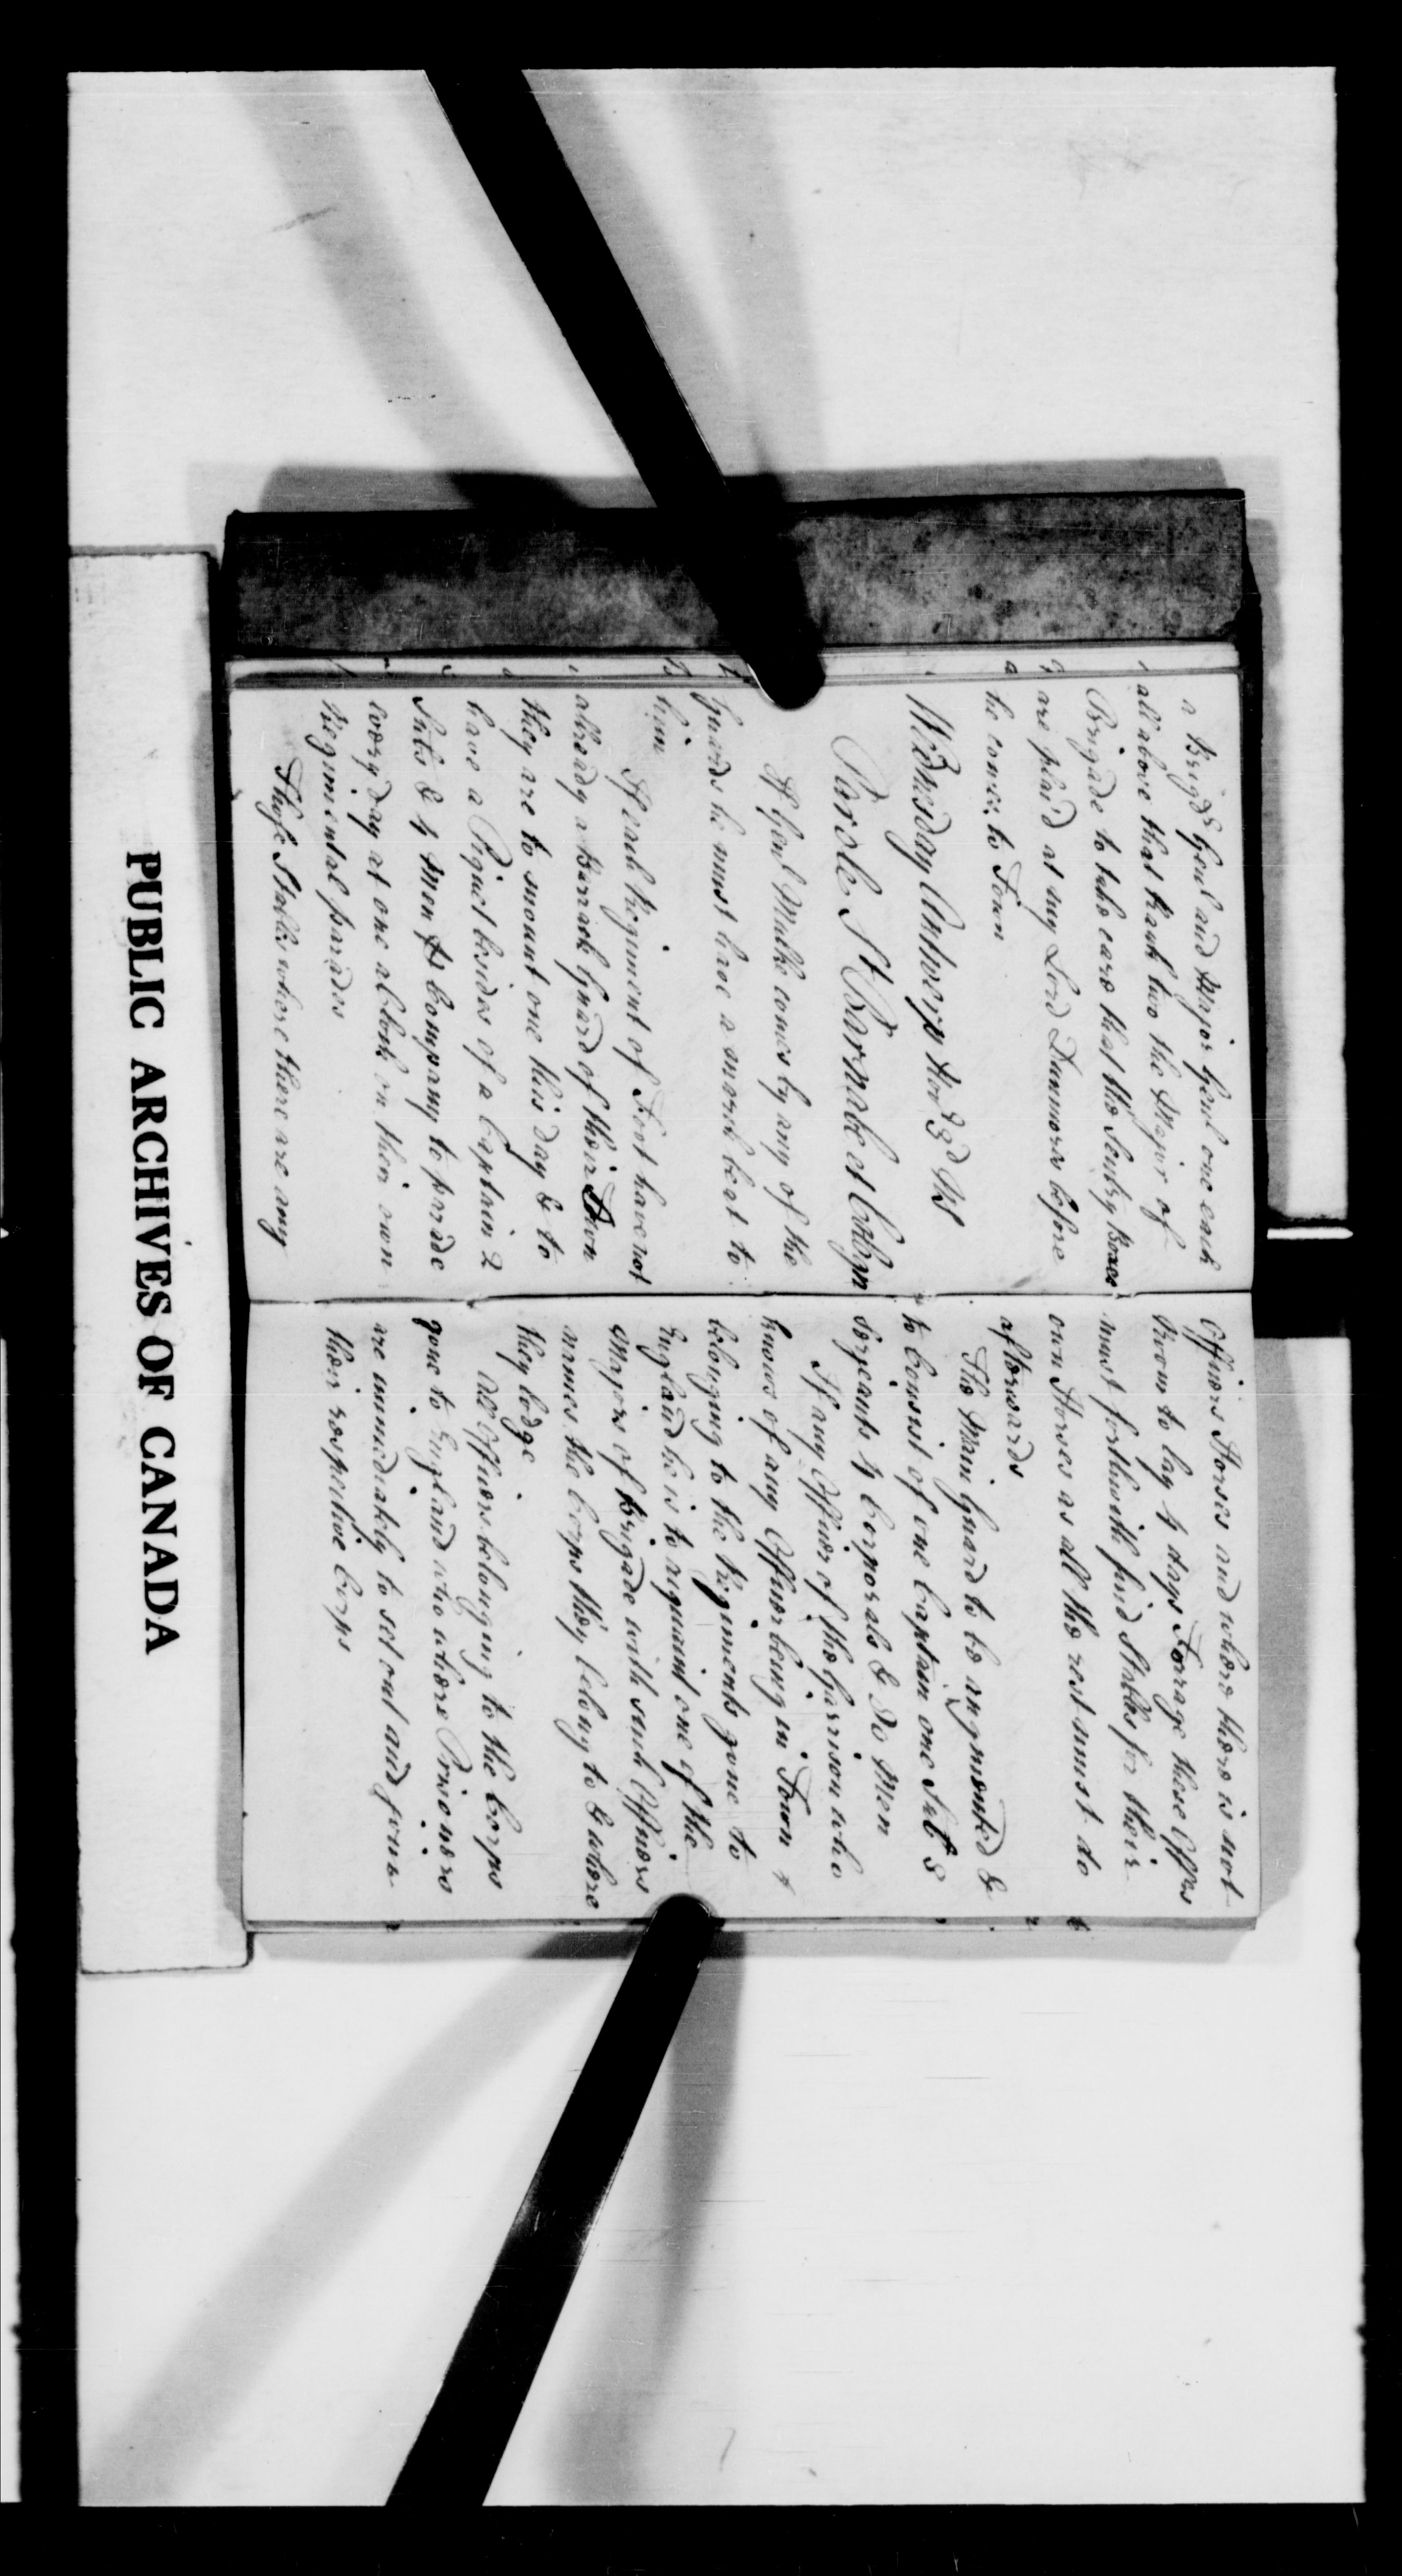 a Brigdr Genl and Major Genl one each
all above that Rank two the Major of
Brigade to take care that the Sentry Boxes
are plac'd at my Lord Dunmores before
he comes to Town
Wednesday Antwerp Novr 3d NS
Parole St Barnabe et
If Genl comes by any of the
Guards he must have a march beat to
him
If each Regiment of Foot have not
already a Barrack Guard of their Town
they are to mount one this day & to
have a Piquet besides of a Captain 2
Subs & 4 Men Company to parade
every day at one a Clock on their own
Regimental parades
Those Stables where there are any
Officers Horses and where there is not
Room to lay 4 days Forrage these Offrs
must forthwith find Stables for their
own Horses as all the rest must do
afterwards
The Main Guard to be augmented &
to Consist of one Captain one Sub 3
Serjeants 4 Corporals & 50 Men
If any Officer of the Garrison who
knows of any Officer being in Town
belonging to the Regiments gone to
England he is to acquaint one of the
Majors of Brigade with such Officers
names the Corps they belong to & where
they lodge
All Officers belonging to the Corps
gone to England who where Prisoners
are immediately to set out and join
their respective Corps
PUBLIC ARCHIVES OF CANADA